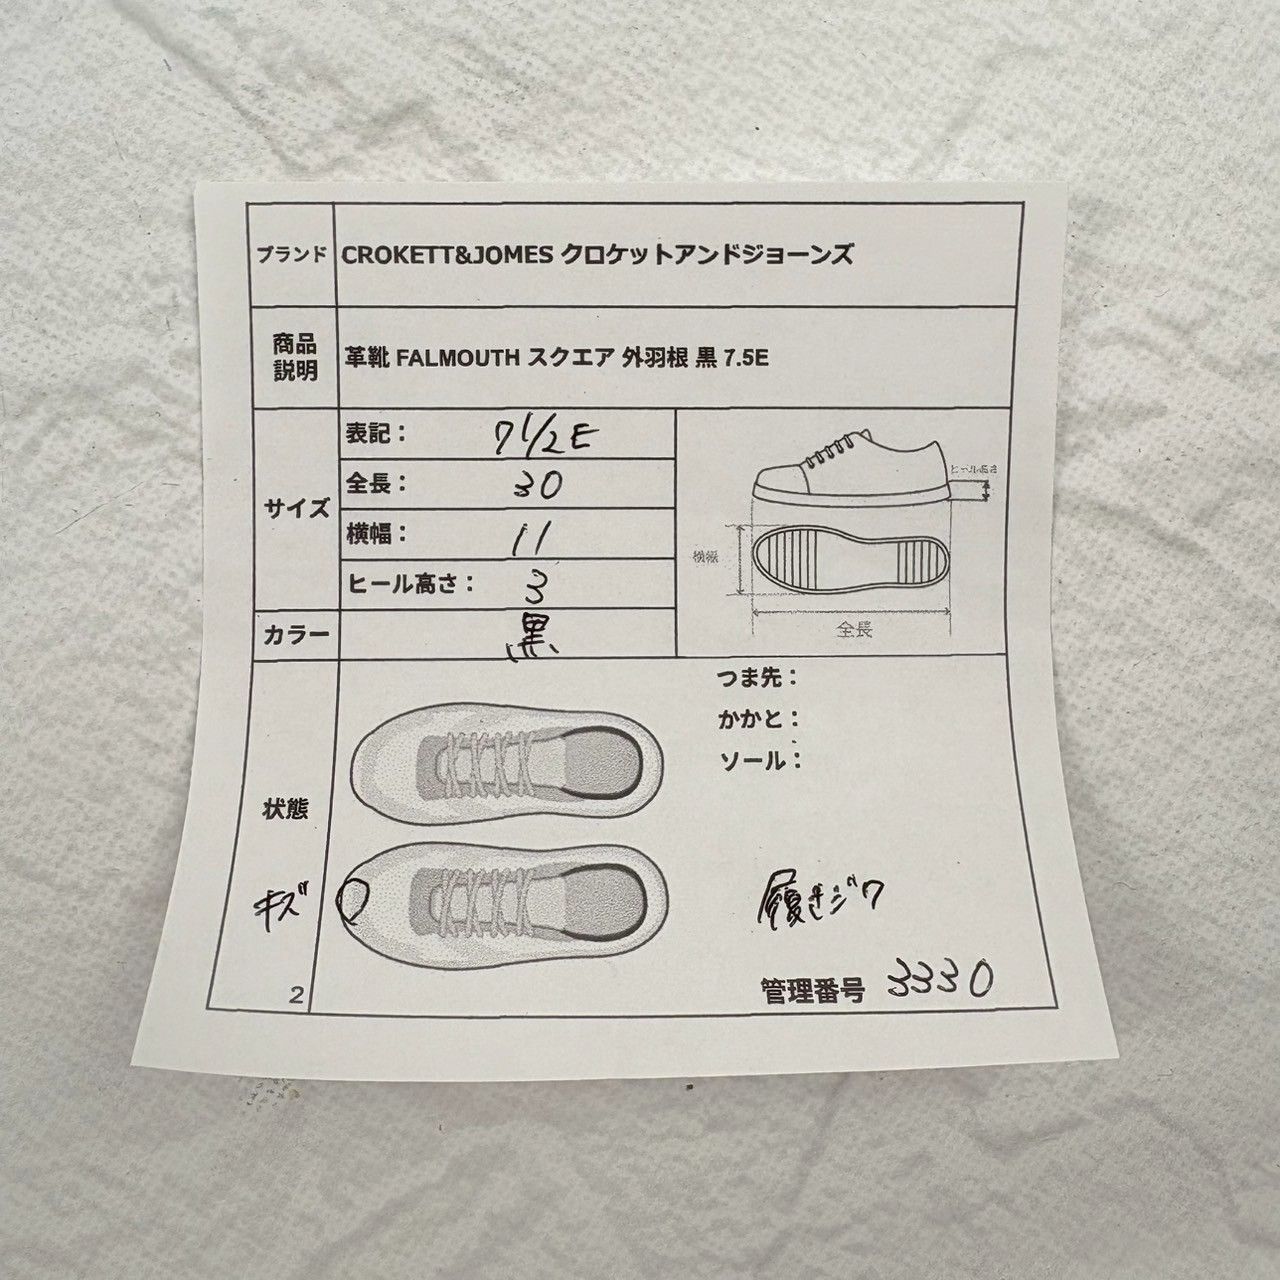 ブランド CROKETT&JOMES クロケットアンドジョーンズ
商品
説明
革靴 FALMOUTH スクエア 外羽根 黒 7.5E
サイズ
表記： 7 1/2 E
全長： 30
横幅： 11
ヒール高さ： 3
ヒール高さ
横幅
全長
カラー 黒
状態
つま先：
かかと：
ソール：
キズ
履きジワ
2
管理番号 3330